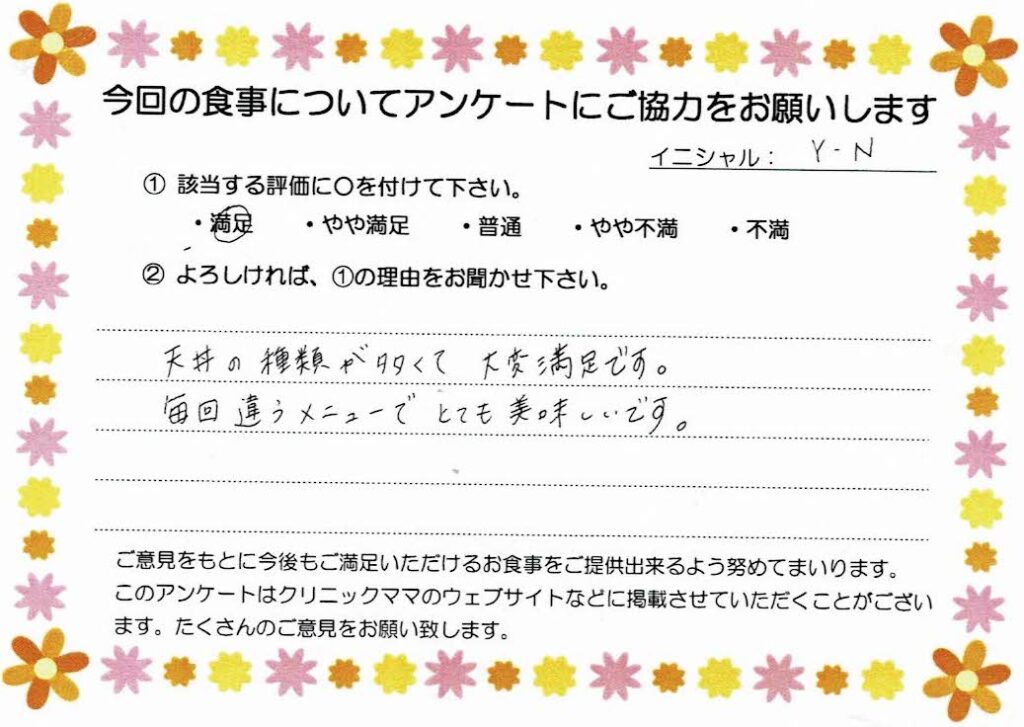 今回の食事についてアンケートにご協力をお願いします
イニシャル: Y-N
① 該当する評価に○を付けて下さい。
・満足 ・やや満足 ・普通 ・やや不満 ・不満
② よろしければ、①の理由をお聞かせ下さい。
天丼の種類が多くて 大変満足です。
毎回違うメニューで とても美味しいです。
ご意見をもとに今後もご満足いただけるお食事をご提供出来るよう努めてまいります。
このアンケートはクリニックママのウェブサイトなどに掲載させていただくことがござい
ます。たくさんのご意見をお願い致します。